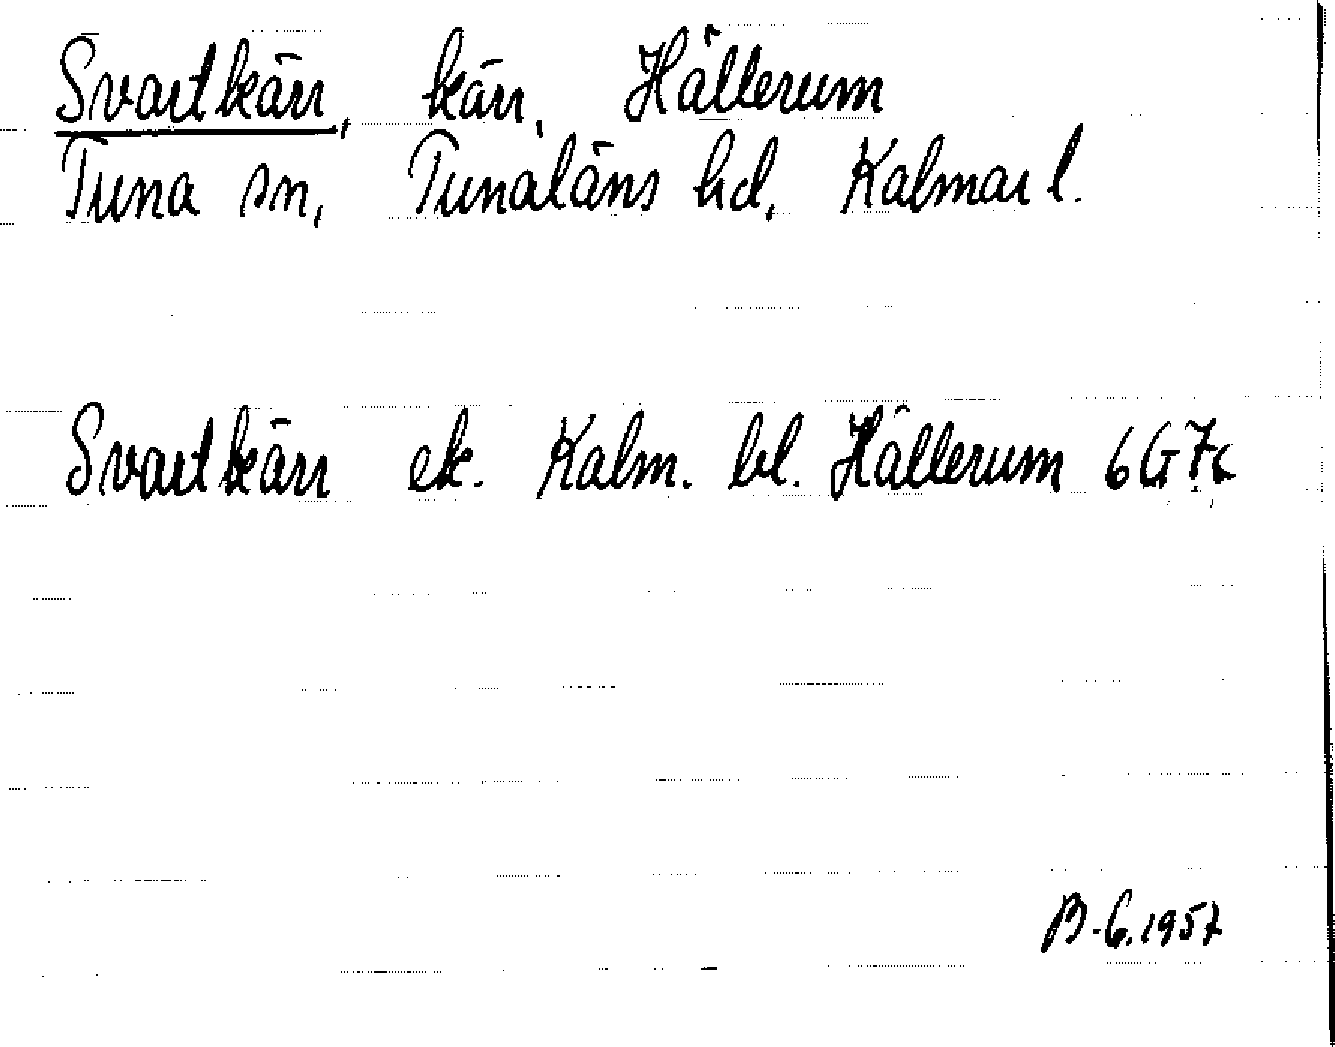 Svartkärr, kärr, Hällerum
Tuna sn, Tunaläns hd, Kalmar l.
Svartkärr ek. Kalm. bl. Hällerum 6G7c
B-G.1957